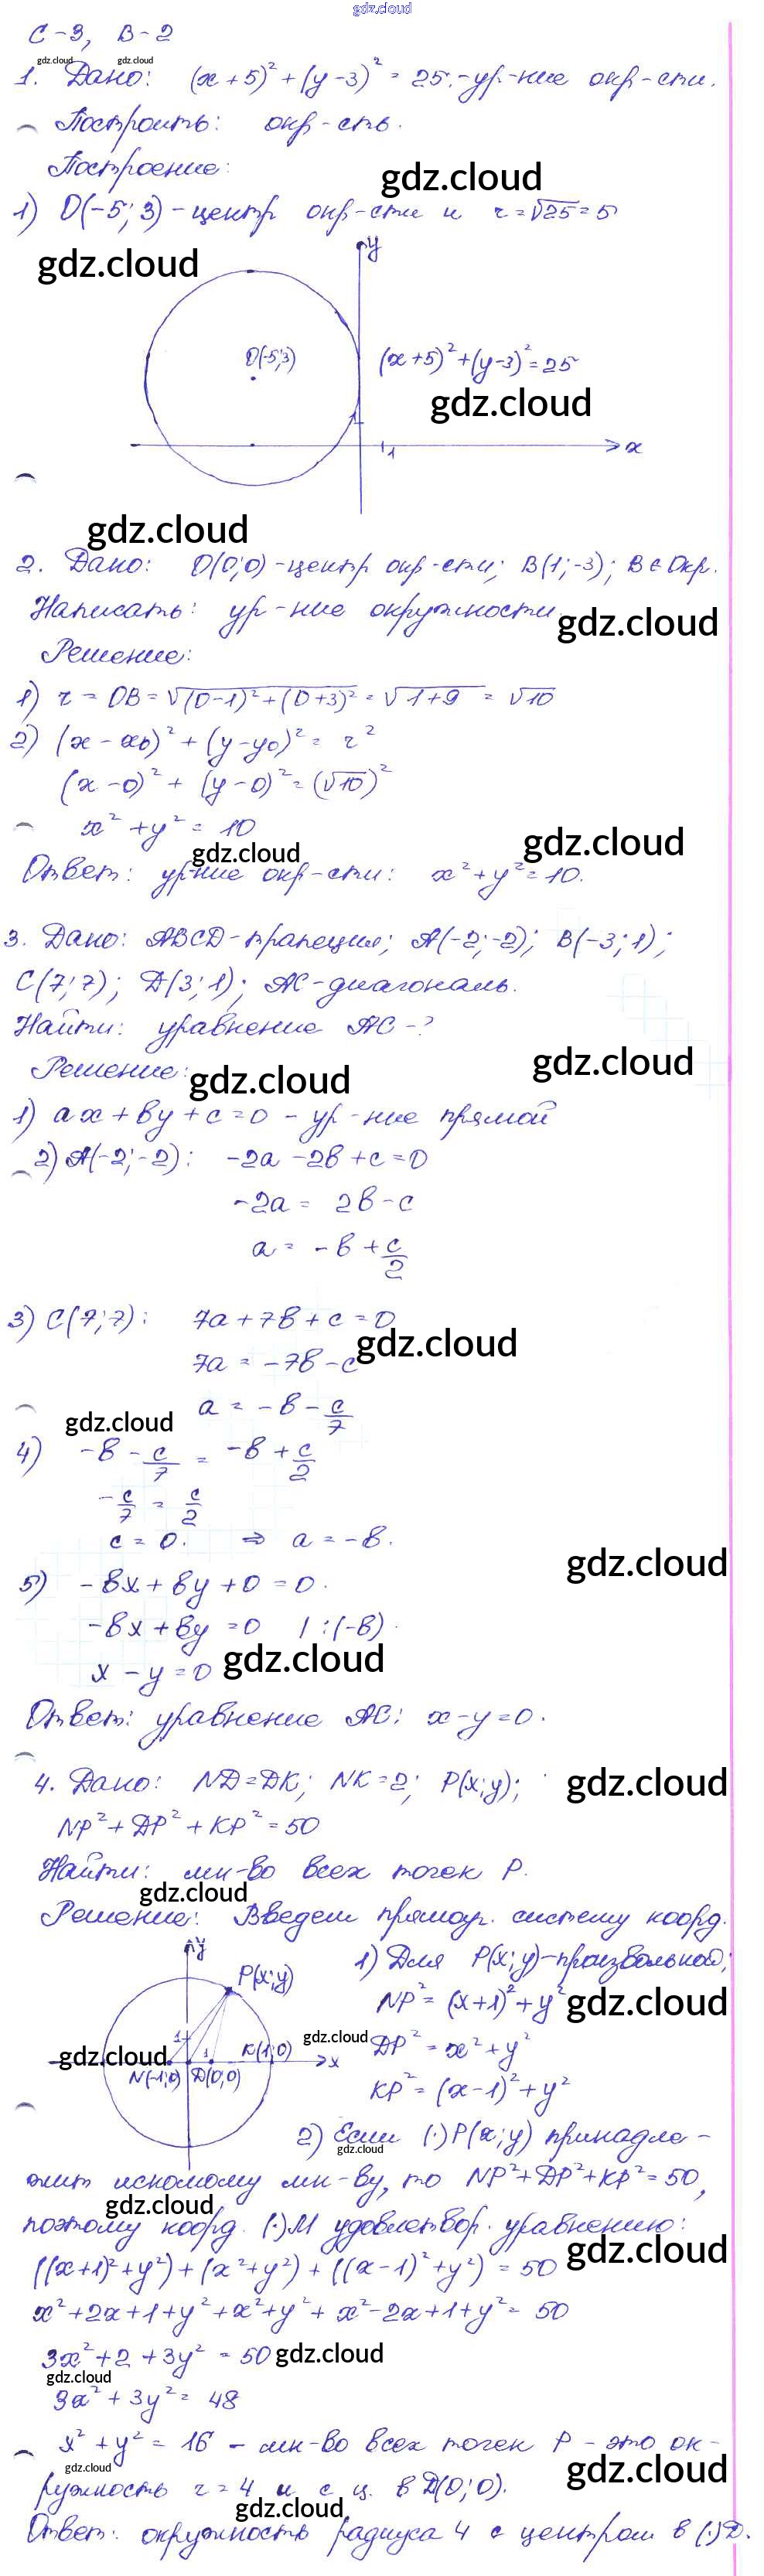 gdz.cloud
С-3, В-2
gdz.cloud gdz.cloud
1. Дано: (x+5)² + (y-3)² = 25. - ур-ние окр-сти.
Построить: окр-сть.
Построение:
gdz.cloud
1) O(-5; 3) - центр окр-сти и r = √25 = 5
gdz.cloud
y
O(-5;3)
(x+5)² + (y-3)² = 25
gdz.cloud
1 x
gdz.cloud
2. Дано: O(0;0) - центр окр-сти; B(1;-3); B ∈ Окр.
Написать: ур-ние окружности.
gdz.cloud
Решение:
1) r = OB = √(0-1)² + (0+3)² = √1+9 = √10
2) (x - x₀)² + (y - y₀)² = r²
(x - 0)² + (y - 0)² = (√10)²
x² + y² = 10
gdz.cloud gdz.cloud
Ответ: ур-ние окр-сти: x² + y² = 10.
3. Дано: ABCD - трапеция; A(-2;-2); B(-3;1);
C(7;7); D(3;1); AC - диагональ.
Найти: уравнение AC - ?
gdz.cloud
Решение:
gdz.cloud
1) ax + by + c = 0 - ур-ние прямой
2) A(-2;-2): -2a - 2b + c = 0
-2a = 2b - c
a = -b + c/2
3) C(7;7): 7a + 7b + c = 0
gdz.cloud
7a = -7b - c
a = -b - c/7
gdz.cloud
4) -b - c/7 = -b + c/2
-c/7 = c/2
c = 0. ⇒ a = -b.
gdz.cloud
5) -bx + by + 0 = 0.
-bx + by = 0 | :(-b)
x - y = 0
gdz.cloud
Ответ: уравнение AC: x - y = 0.
4. Дано: ND = DK; NK = 2; P(x;y);
gdz.cloud
NP² + DP² + KP² = 50
Найти: мн-во всех точек P.
gdz.cloud
Решение: Введем прямоуг. систему коорд.
y
P(x;y)
1
gdz.cloud
1
K(1;0)
x
N(-1;0) D(0;0)
1) Для P(x;y) - произвольной;
NP² = (x+1)² + y²
gdz.cloud
gdz.cloud
DP² = x² + y²
KP² = (x-1)² + y²
2) Если (·)P(x;y) принадле-
gdz.cloud
жит искомому мн-ву, то NP² + DP² + KP² = 50,
gdz.cloud
поэтому коорд. (·)M удовлетвор. уравнению:
gdz.cloud
((x+1)² + y²) + (x² + y²) + ((x-1)² + y²) = 50
x² + 2x + 1 + y² + x² + y² + x² - 2x + 1 + y² = 50
3x² + 2 + 3y² = 50
gdz.cloud
gdz.cloud
3x² + 3y² = 48
x² + y² = 16 - мн-во всех точек P - это ок-
gdz.cloud gdz.cloud
ружность r = 4 и с ц. в D(0;0).
gdz.cloud
Ответ: окружность радиуса 4 с центром в (·)D.